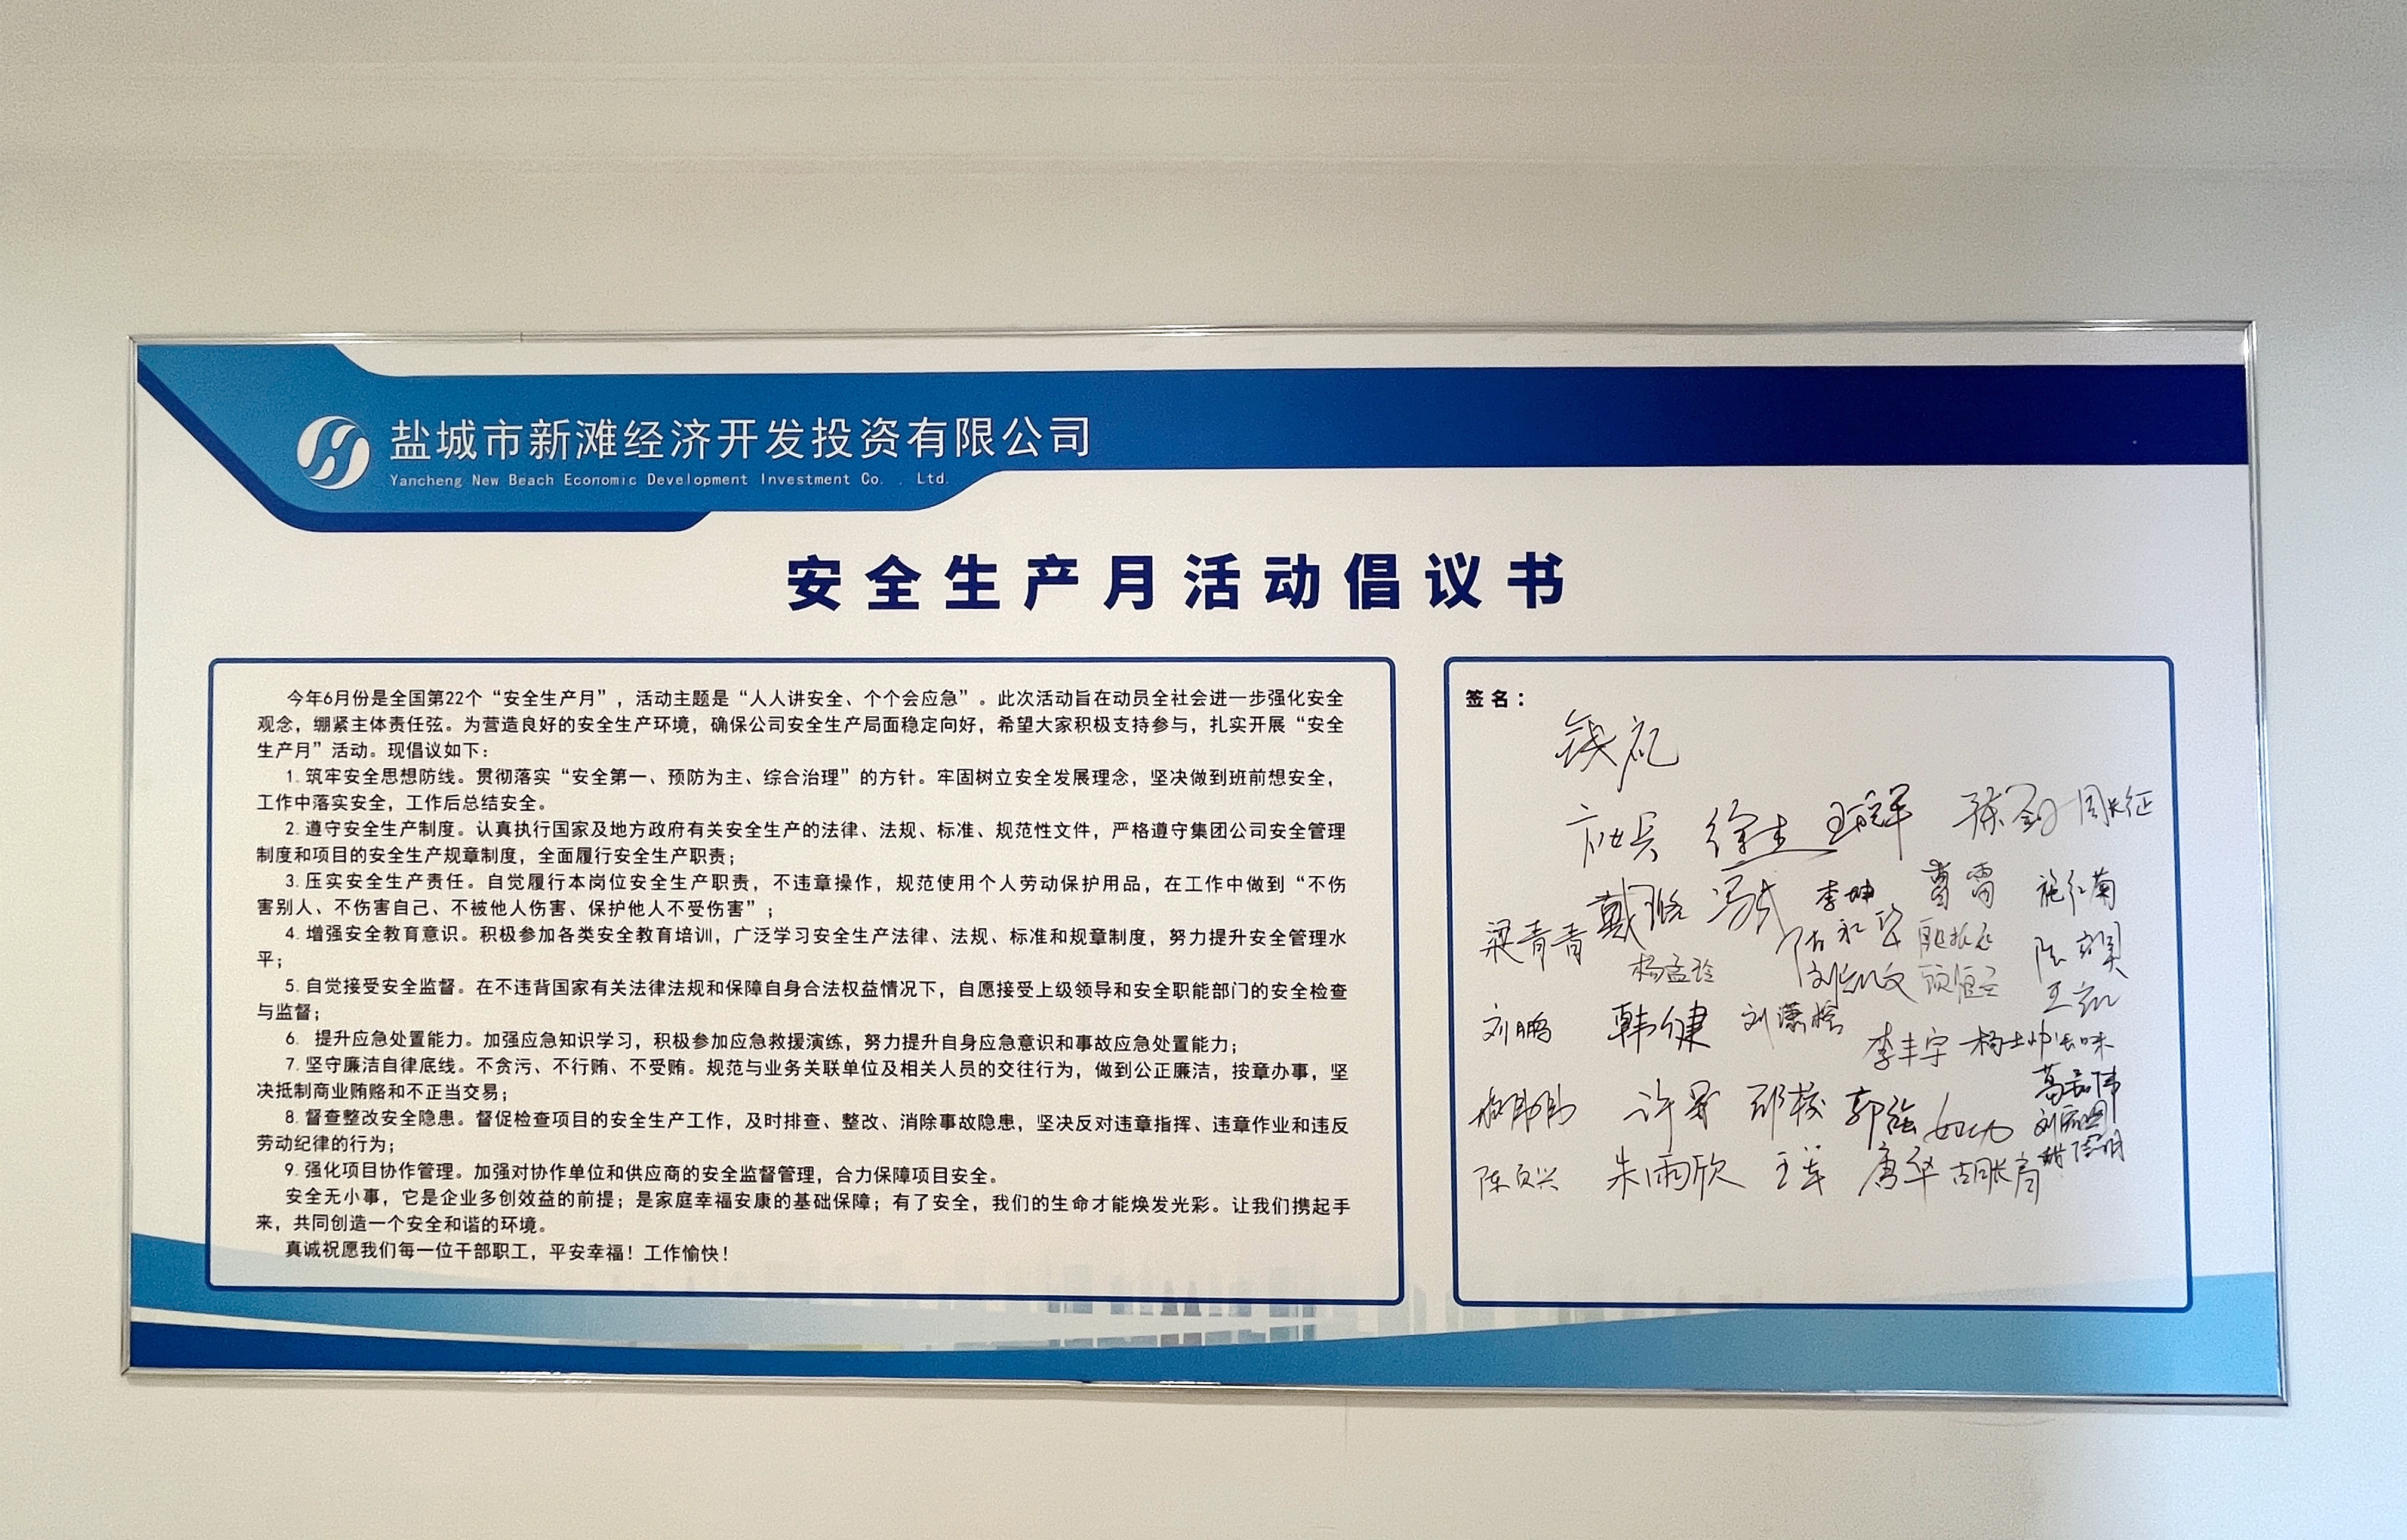 盐城市新滩经济开发投资有限公司
Yancheng New Beach Economic Development Investment Co. . Ltd.
安全生产月活动倡议书
今年6月份是全国第22个“安全生产月”，活动主题是“人人讲安全、个个会应急”。此次活动旨在动员全社会进一步强化安全
观念，绷紧主体责任弦。为营造良好的安全生产环境，确保公司安全生产局面稳定向好，希望大家积极支持参与，扎实开展“安全
生产月”活动。现倡议如下：
1.筑牢安全思想防线。贯彻落实“安全第一、预防为主、综合治理”的方针。牢固树立安全发展理念，坚决做到班前想安全，
工作中落实安全，工作后总结安全。
2.遵守安全生产制度。认真执行国家及地方政府有关安全生产的法律、法规、标准、规范性文件，严格遵守集团公司安全管理
制度和项目的安全生产规章制度，全面履行安全生产职责；
3.压实安全生产责任。自觉履行本岗位安全生产职责，不违章操作，规范使用个人劳动保护用品，在工作中做到“不伤
害别人、不伤害自己、不被他人伤害、保护他人不受伤害”；
4.增强安全教育意识。积极参加各类安全教育培训，广泛学习安全生产法律、法规、标准和规章制度，努力提升安全管理水
平；
5.自觉接受安全监督。在不违背国家有关法律法规和保障自身合法权益情况下，自愿接受上级领导和安全职能部门的安全检查
与监督；
6. 提升应急处置能力。加强应急知识学习，积极参加应急救援演练，努力提升自身应急意识和事故应急处置能力；
7.坚守廉洁自律底线。不贪污、不行贿、不受贿。规范与业务关联单位及相关人员的交往行为，做到公正廉洁，按章办事，坚
决抵制商业贿赂和不正当交易；
8.督查整改安全隐患。督促检查项目的安全生产工作，及时排查、整改、消除事故隐患，坚决反对违章指挥、违章作业和违反
劳动纪律的行为；
9.强化项目协作管理。加强对协作单位和供应商的安全监督管理，合力保障项目安全。
安全无小事，它是企业多创效益的前提；是家庭幸福安康的基础保障；有了安全，我们的生命才能焕发光彩。让我们携起手
来，共同创造一个安全和谐的环境。
真诚祝愿我们每一位干部职工，平安幸福！工作愉快！
签名：
周长征
李坤
施红菊
梁青青
杨孟玲
刘鹏 韩健
李丰宇
郭強
朱雨欣 王军 唐华